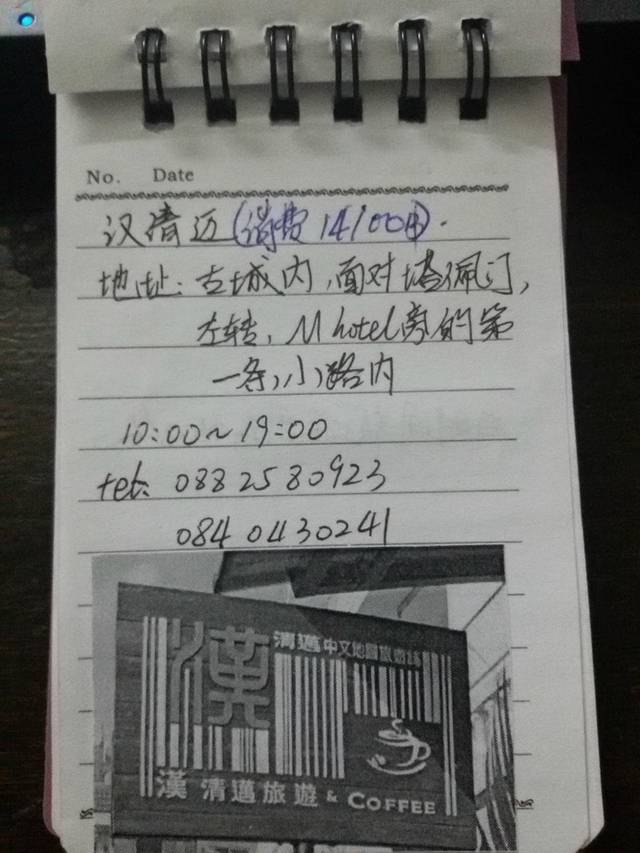 No. Date
汉清迈(消费14100铢).
地址:古城内,面对塔佩门,
左转,M hotel旁的第
一条小路内
10:00~19:00
tel: 088 2580923
084 0430241
漢
清邁中文地圖旅遊
漢 清邁旅遊 & COFFEE